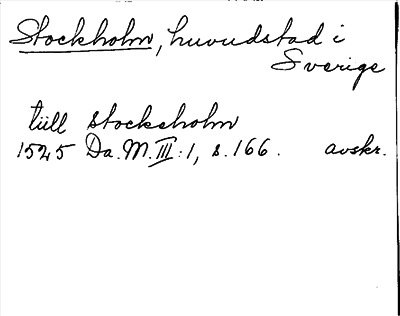 Stockholm, huvudstad i
Sverige
tüll stockeholm
1525 Da. M. III: 1, s. 166. avskr.